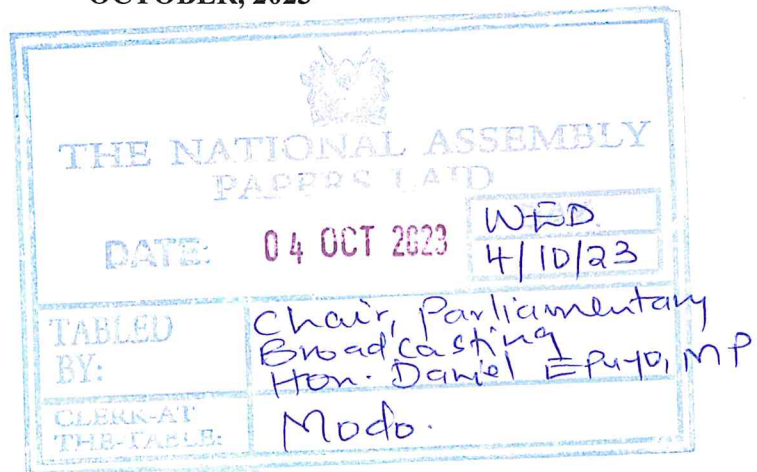 OCTOBER, 2023
THE NATIONAL ASSEMBLY
PAPERS LAID
DATE: 04 OCT 2023 WED
4/10/23
TABLED BY: Chair, Parliamentary
Broadcasting
Hon. Daniel Epuyo, MP
CLERK-AT
THE-TABLE: Modo.